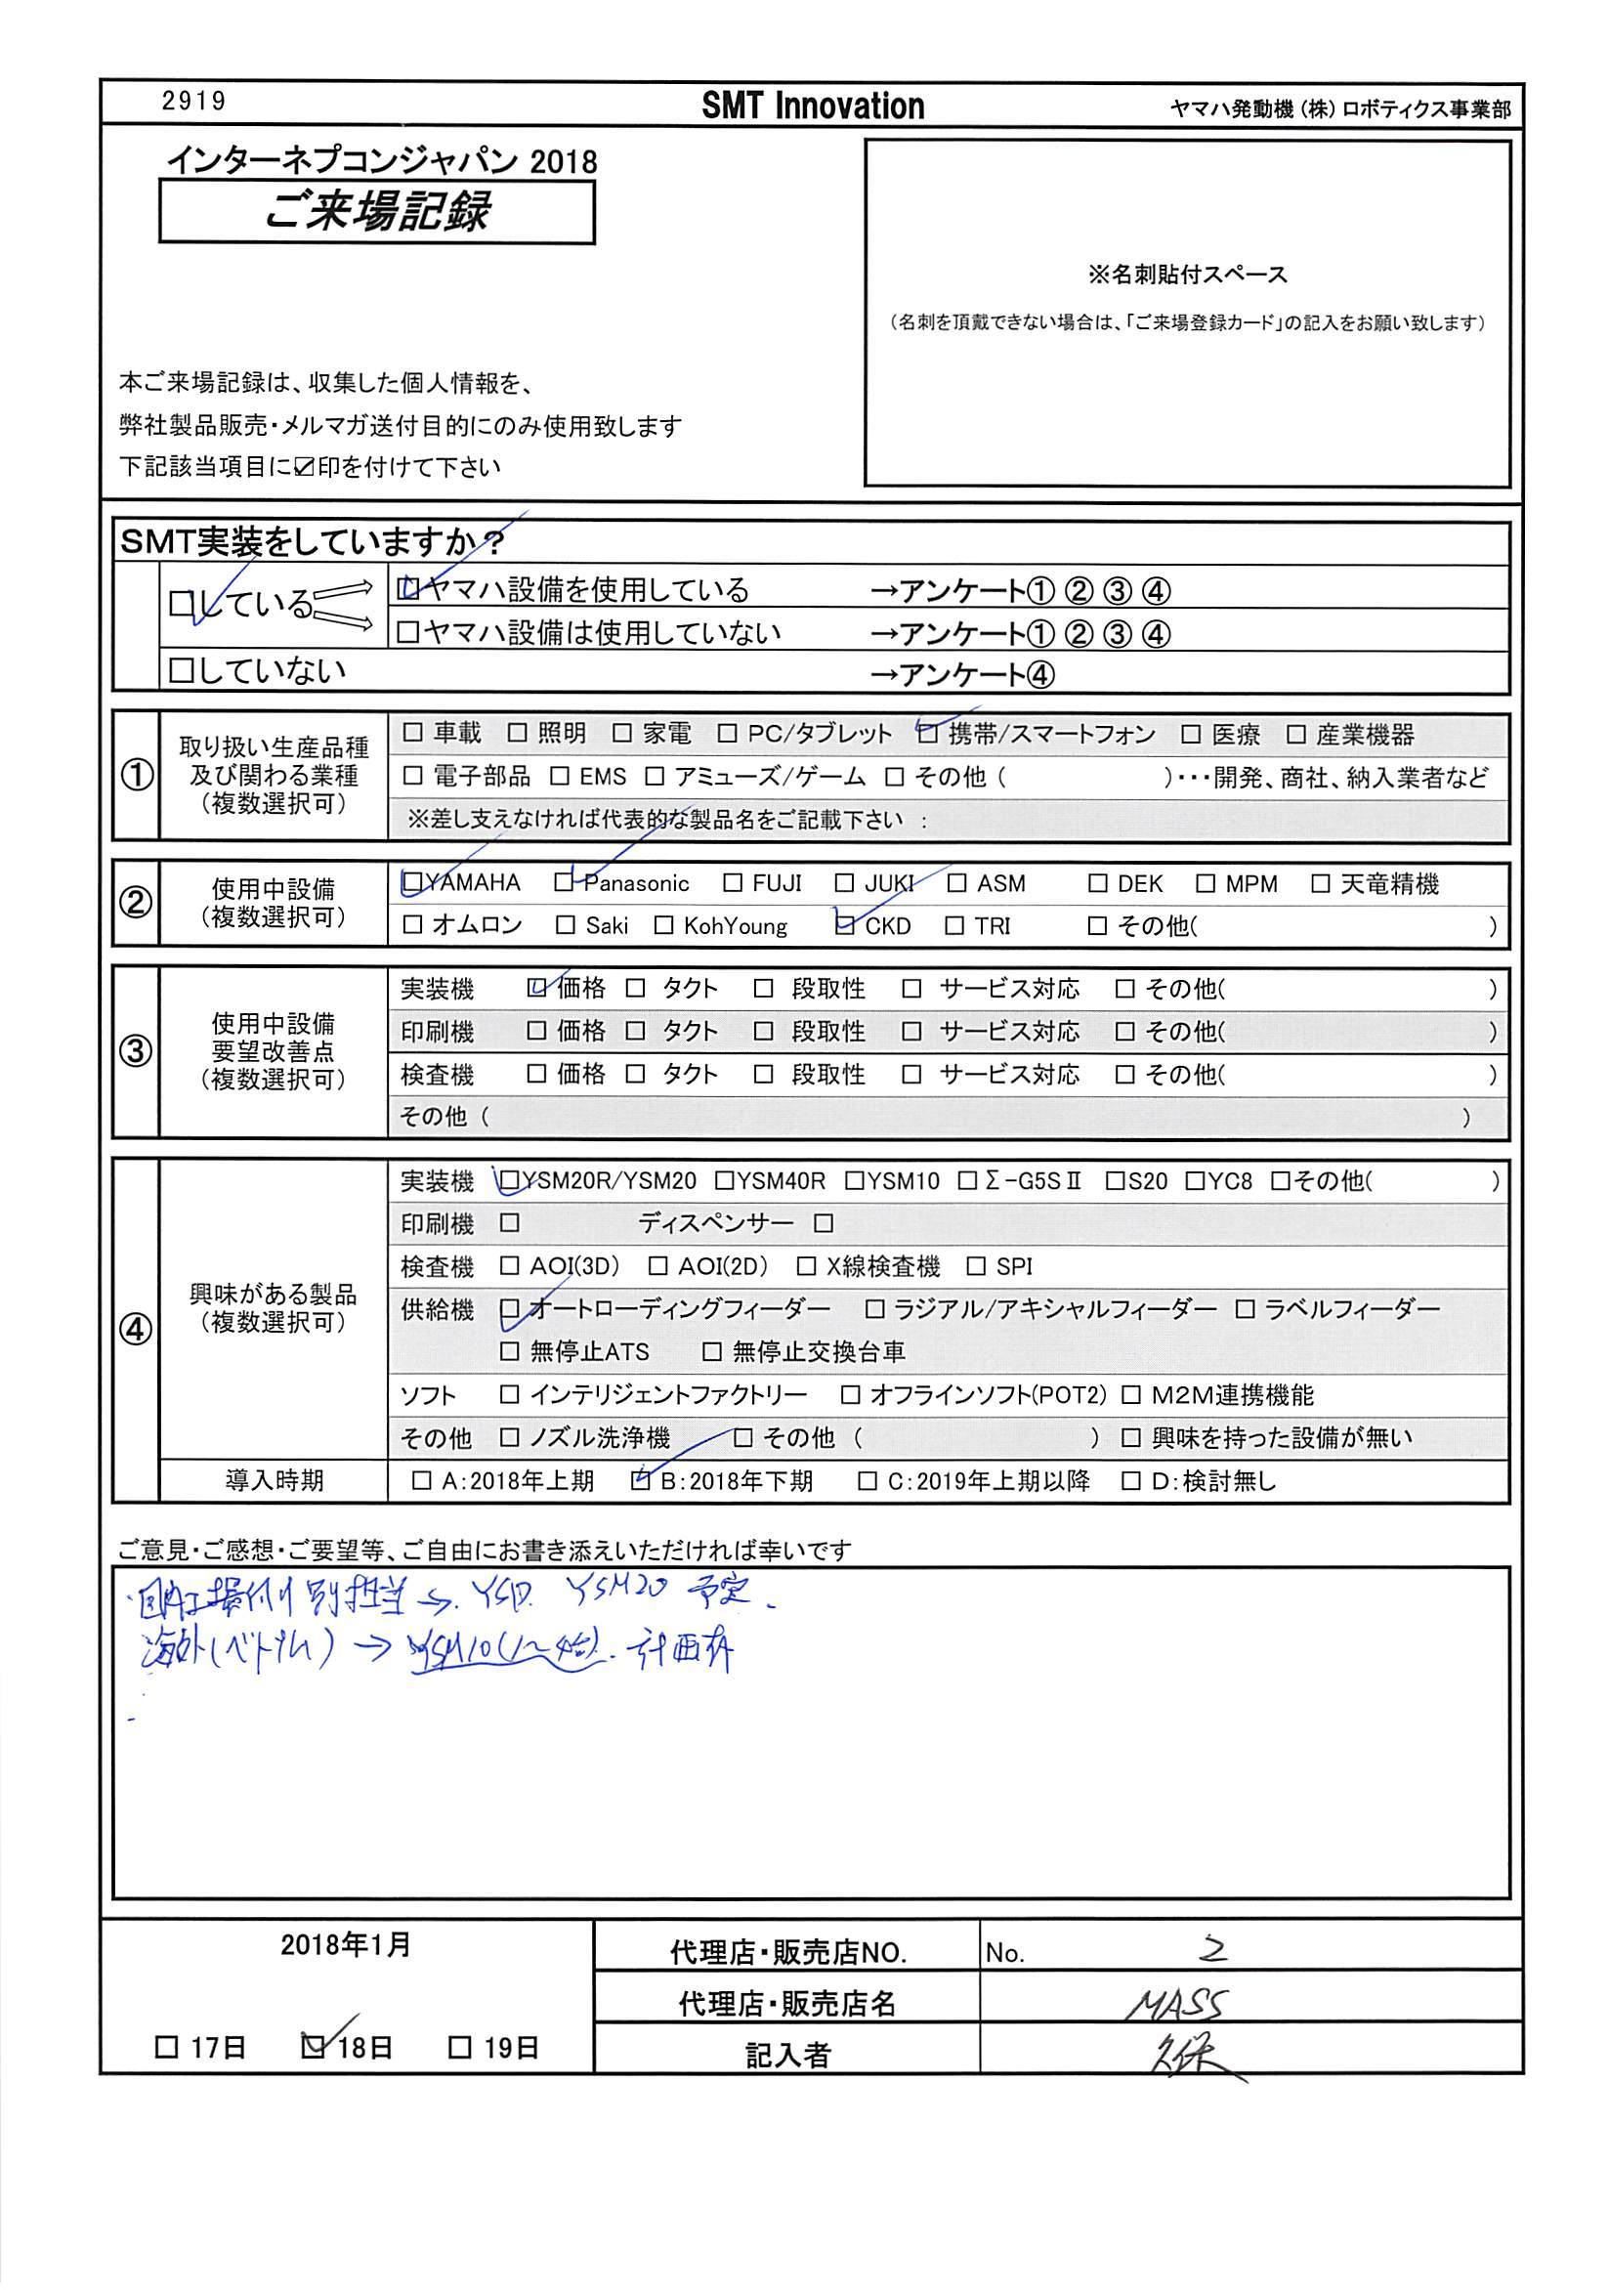 2919 SMT Innovation ヤマハ発動機(株)ロボティクス事業部
インターネプコンジャパン 2018
ご来場記録
※名刺貼付スペース
(名刺を頂戴できない場合は、「ご来場登録カード」の記入をお願い致します)
本ご来場記録は、収集した個人情報を、
弊社製品販売・メルマガ送付目的にのみ使用致します
下記該当項目に☑印を付けて下さい
SMT実装をしていますか?
☑している ☑ヤマハ設備を使用している →アンケート① ② ③ ④
□ヤマハ設備は使用していない →アンケート① ② ③ ④
□していない →アンケート④
① 取り扱い生産品種及び関わる業種(複数選択可)
□ 車載 □ 照明 □ 家電 □ PC/タブレット ☑ 携帯/スマートフォン □ 医療 □ 産業機器
□ 電子部品 □ EMS □ アミューズ/ゲーム □ その他 ( )・・・開発、商社、納入業者など
※差し支えなければ代表的な製品名をご記載下さい :
② 使用中設備(複数選択可)
☑YAMAHA ☑Panasonic □ FUJI □ JUKI □ ASM □ DEK □ MPM □ 天竜精機
□ オムロン □ Saki □ KohYoung ☑ CKD □ TRI □ その他( )
③ 使用中設備要望改善点(複数選択可)
実装機 ☑ 価格 □ タクト □ 段取性 □ サービス対応 □ その他( )
印刷機 □ 価格 □ タクト □ 段取性 □ サービス対応 □ その他( )
検査機 □ 価格 □ タクト □ 段取性 □ サービス対応 □ その他( )
その他 ( )
④ 興味がある製品(複数選択可)
実装機 ☑YSM20R/YSM20 □YSM40R □YSM10 □Σ-G5SⅡ □S20 □YC8 □その他( )
印刷機 □ ディスペンサー □
検査機 □ AOI(3D) □ AOI(2D) □ X線検査機 □ SPI
供給機 ☑ オートローディングフィーダー □ ラジアル/アキシャルフィーダー □ ラベルフィーダー
□ 無停止ATS □ 無停止交換台車
ソフト □ インテリジェントファクトリー □ オフラインソフト(POT2) □ M2M連携機能
その他 □ ノズル洗浄機 □ その他 ( ) □ 興味を持った設備が無い
導入時期 □ A:2018年上期 ☑ B:2018年下期 □ C:2019年上期以降 □ D:検討無し
ご意見・ご感想・ご要望等、ご自由にお書き添えいただければ幸いです
・国内工場 別担当 YSP. YSM20 予定.
海外(ベトナム) → YSM10(1~ ). 計画有
2018年1月
□ 17日 ☑ 18日 □ 19日
代理店・販売店NO. No. 2
代理店・販売店名 MASS
記入者 久保